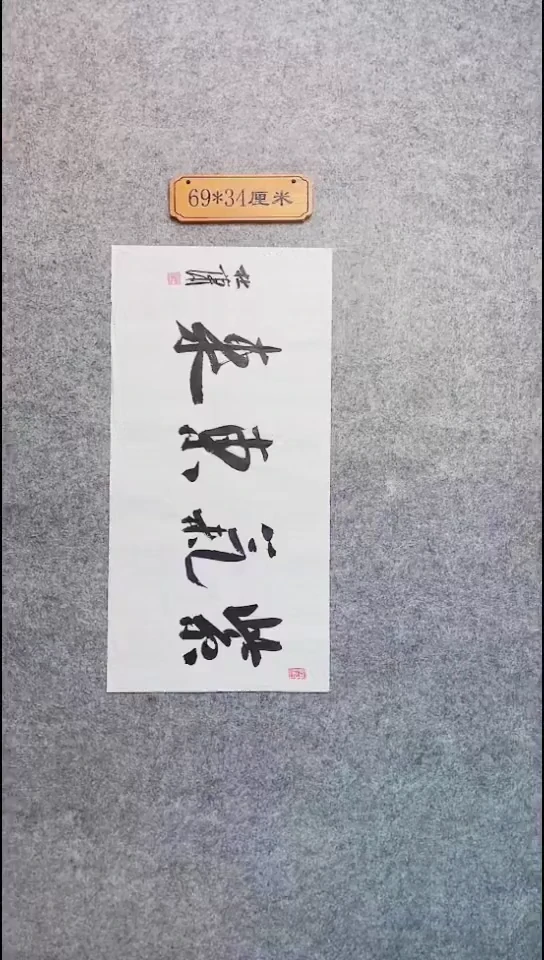 69*34厘米
紫氣東来